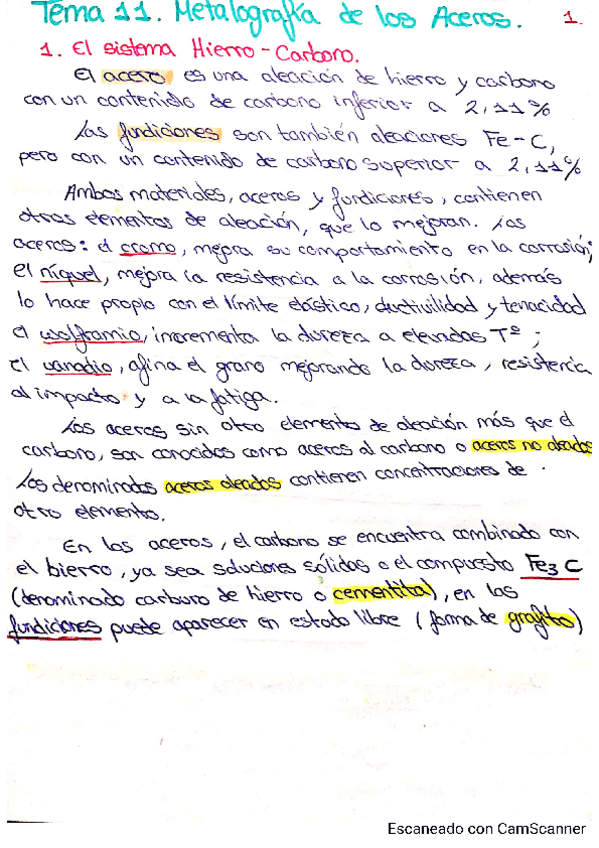 Tema 11. Metalografía de los Aceros. 1.
1. El sistema Hierro-Carbono.
El acero es una aleación de hierro y carbono
con un contenido de carbono inferior a 2,11%
Las fundiciones son también aleaciones Fe-C,
pero con un contenido de carbono superior a 2,11%
Ambos materiales, aceros y fundiciones, contienen
otros elementos de aleación, que lo mejoran. Los
aceros: el cromo, mejora su comportamiento en la corrosión;
el níquel, mejora la resistencia a la corrosión, además
lo hace propio con el límite elástico, ductivilidad y tenacidad
el wolframio, incrementa la dureza a elevadas Tº;
el vanadio, afina el grano mejorando la dureza, resistencia
al impacto y a la fatiga.
Los aceros sin otro elemento de aleación más que el
carbono, son conocidos como aceros al carbono o aceros no aleados
Los denominados aceros aleados contienen concentraciones de
otro elemento.
En los aceros, el carbono se encuentra combinado con
el hierro, ya sea soluciones sólidas o el compuesto Fe3C
(denominado carburo de hierro o cementita), en las
fundiciones puede aparecer en estado libre (forma de grafito)
Escaneado con CamScanner